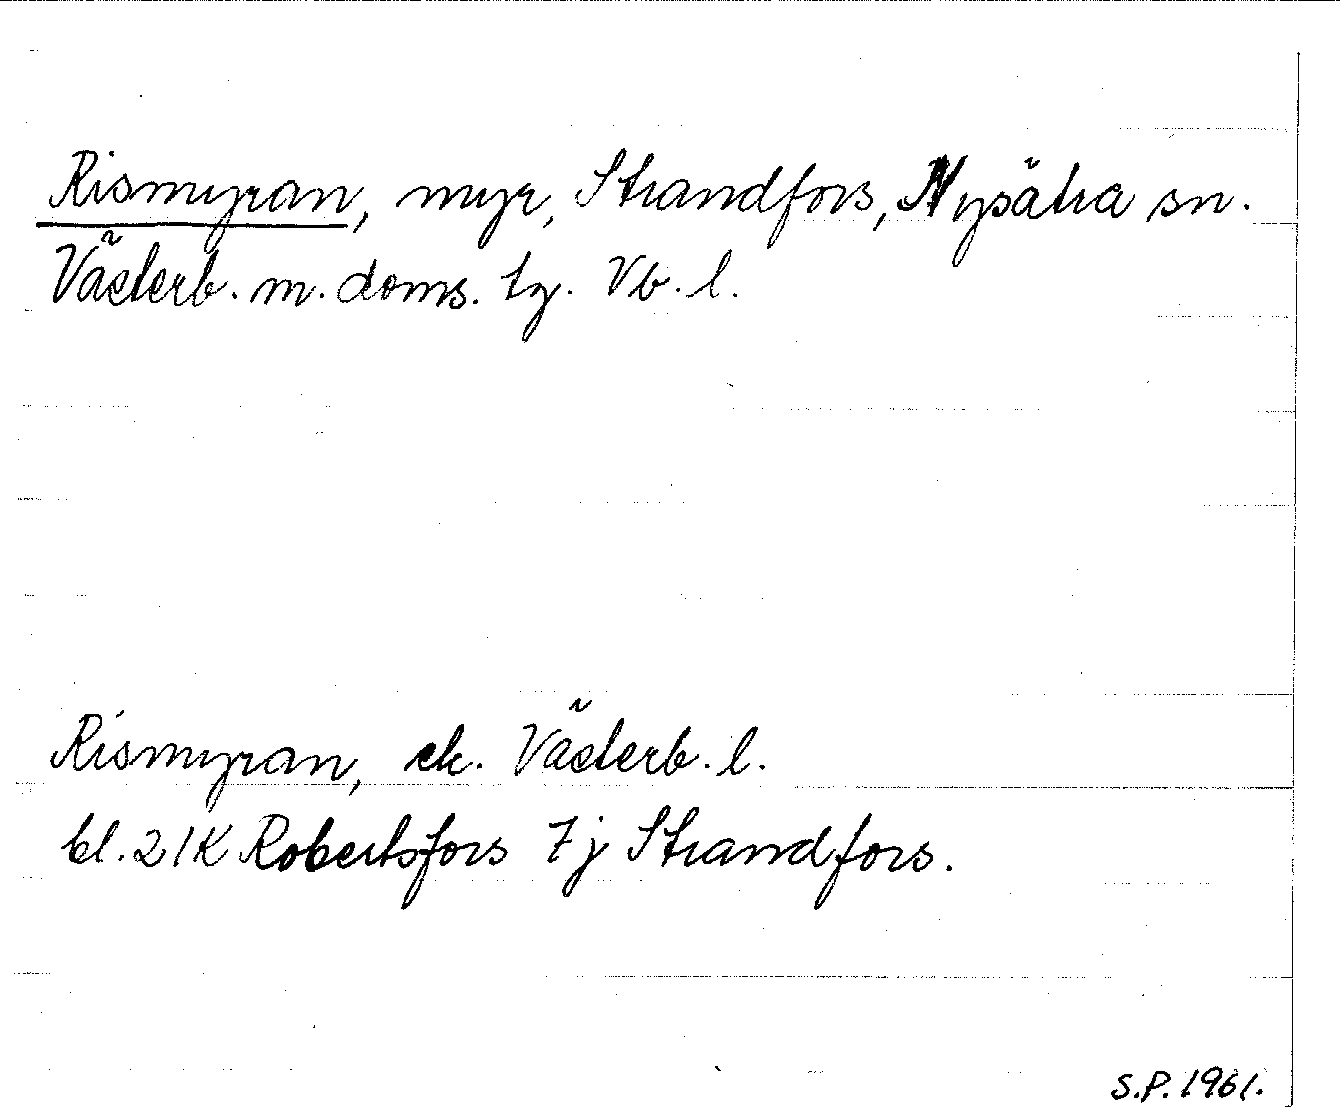 Rismyran, myr, Strandfors, Nysätra sn.
Västerb. m. doms. tg. Vb. l.
Rismyran, ek. Västerb. l.
bl. 21K Robertsfors 7j Strandfors.
S.P. 1961.